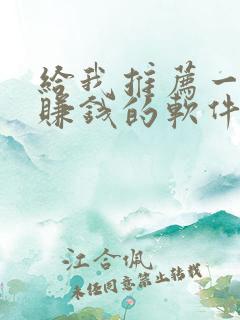 给我推薦一
賺錢的軟件
江合佩
未经同意禁止转载